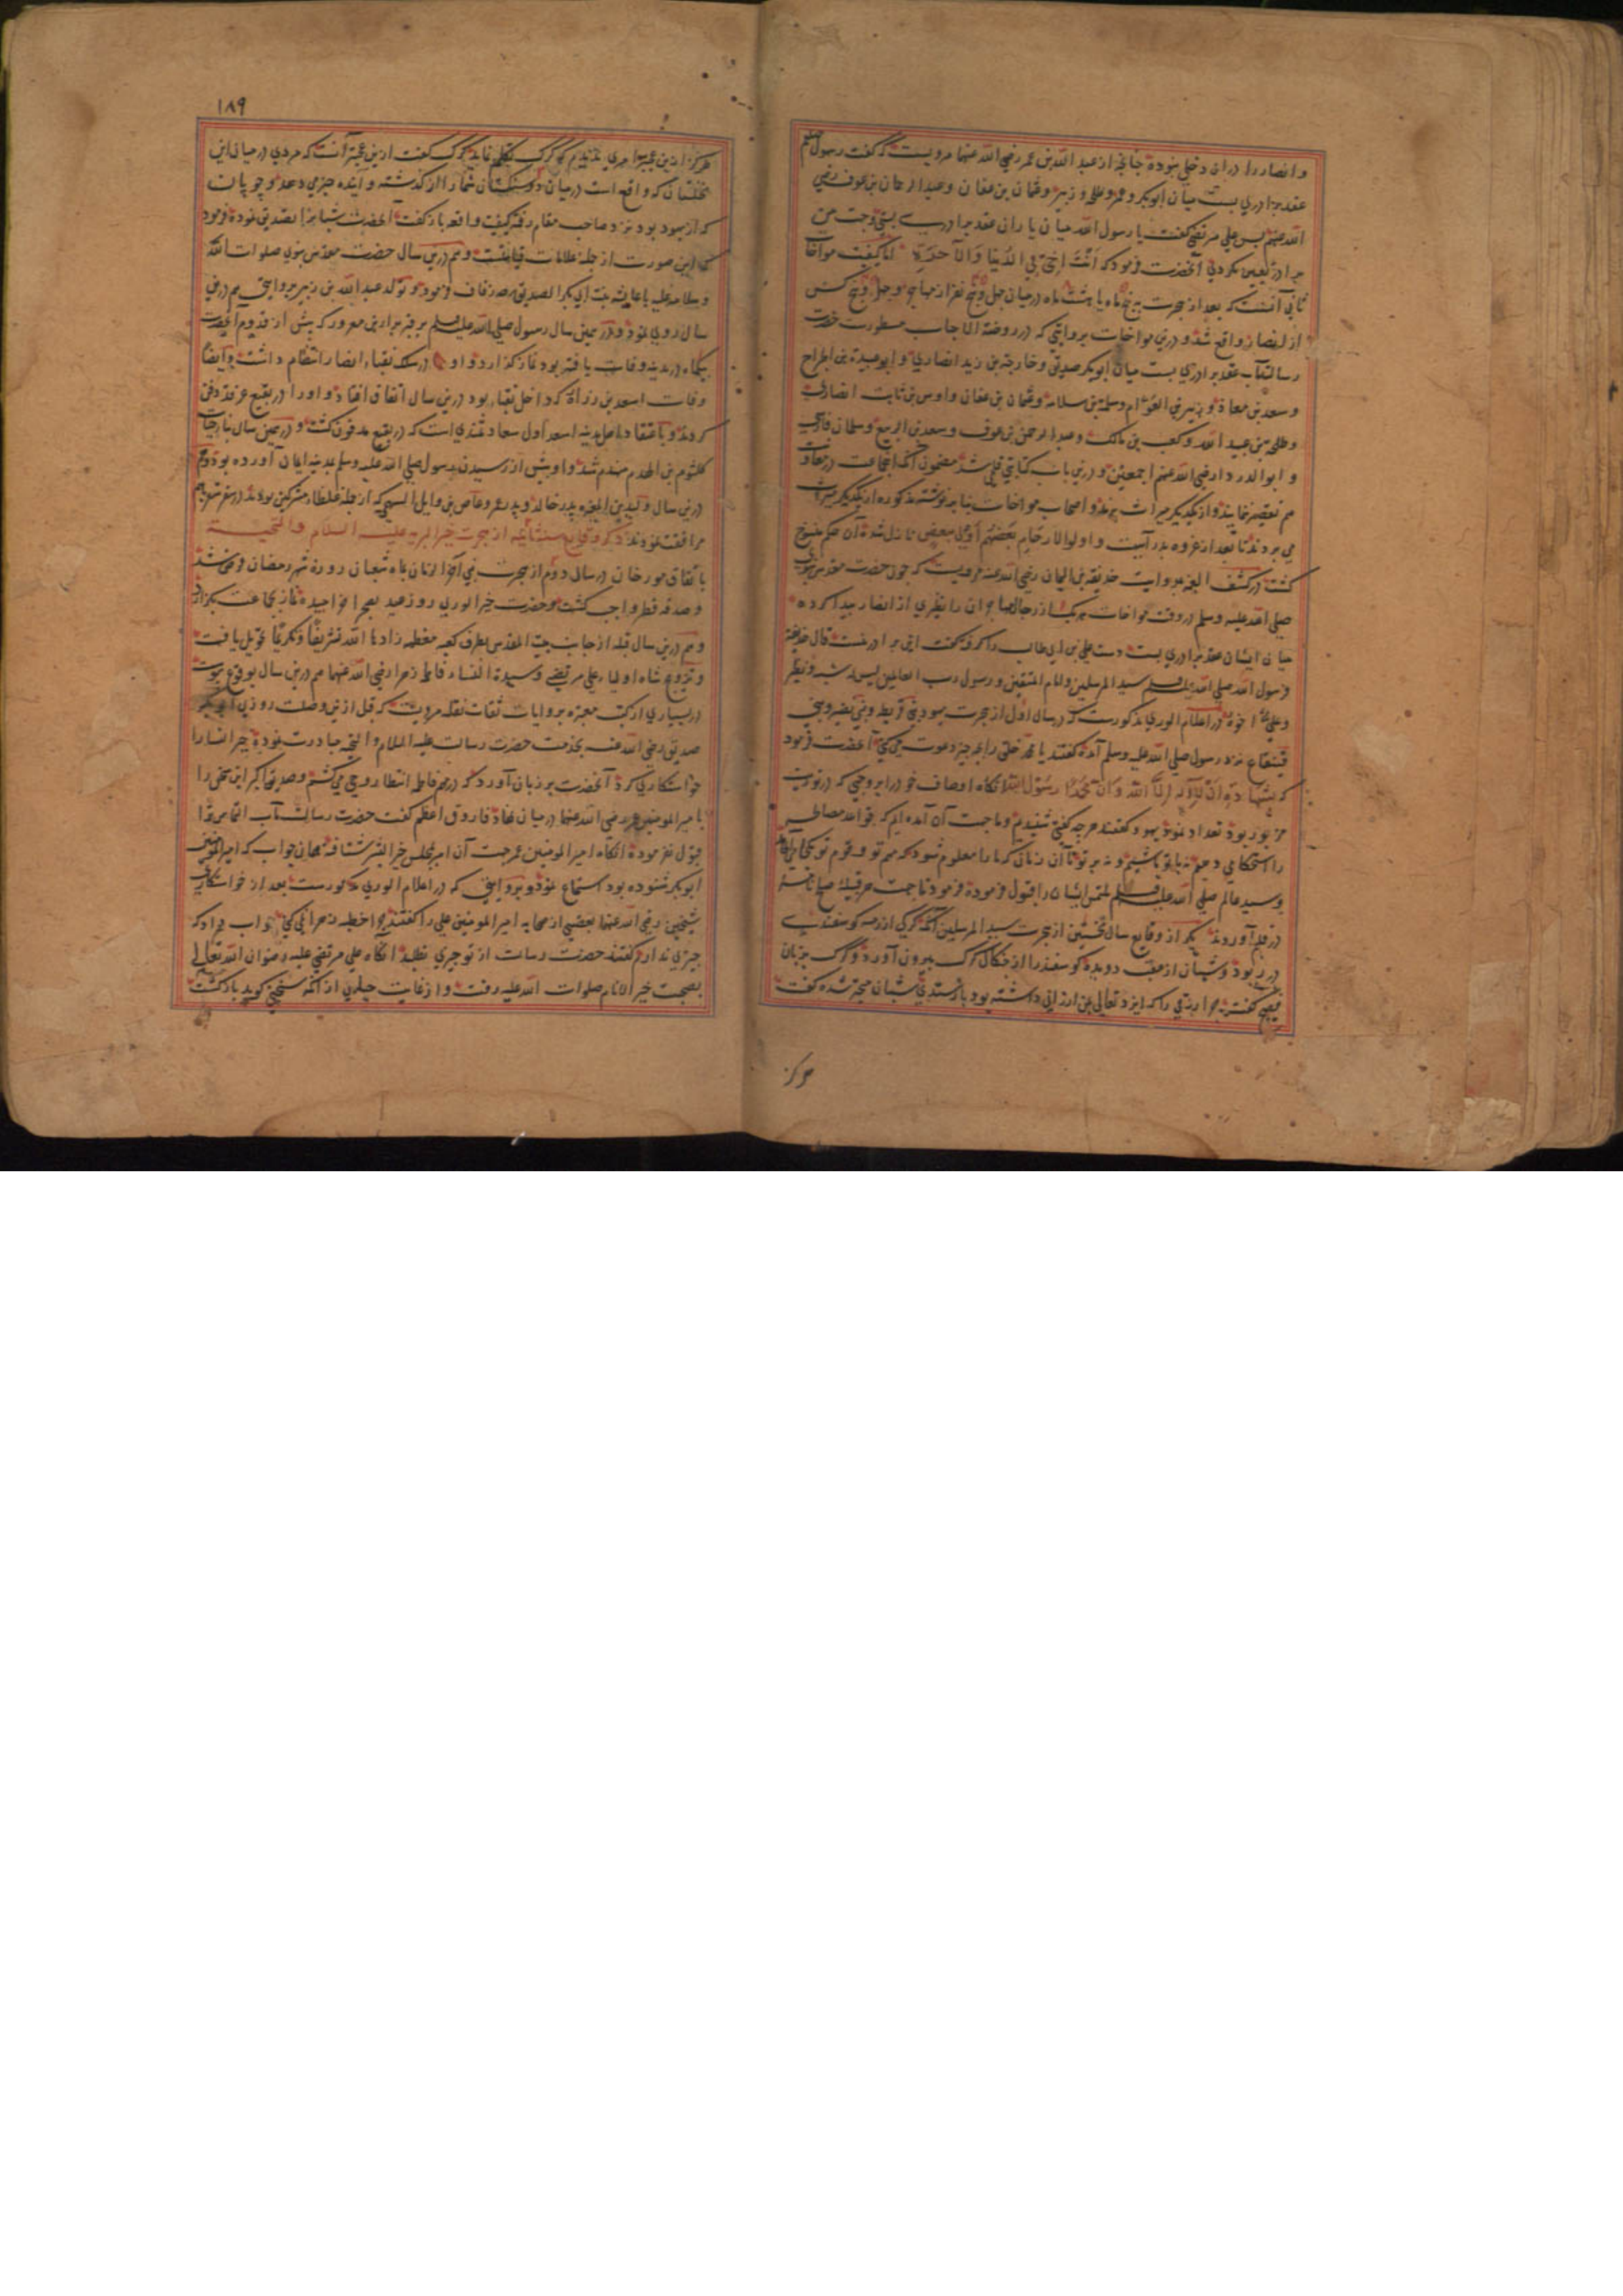 و انصار را دران دخلی نبوده چنانچه از عبد الله بن عمر رضی الله عنهما مرویست که گفت رسول صلعم
عقد برادری بست میان ابوبکر و عمر و طلحه و زبیر و عثمان بن عفان و عبد الرحمان بن عوف رضی
الله عنهم پس علی مرتضی گفت یا رسول الله میان یاران عقد برادری بستی و جهت من
برادر تعیین نکردی آنحضرت فرمود که اَنْتَ اَخِی فِی الدُنیَا وَالآخِرَةِ اما کیفیت مواخات
ثانی آنست که بعد از هجرت به پنج ماه یا هشت ماه در میان چهل و پنج نفر از مهاجر و چهل و پنج کس
از انصار واقع شد و درین مواخات بروایتی که در روضة الاحباب مسطورست حضرت
رسالتمآب عقد برادری بست میان ابوبکر صدیق و خارجة بن زید انصاری و ابو عبیدة بن الجراح
و سعد بن معاذ و زبیر بن العوام و سلمة بن سلامه و عثمان بن عفان و اوس بن ثابت انصاری
و طلحة بن عبید الله و کعب بن مالک و عبد الرحمن بن عوف و سعد بن الربیع و سلمان فارسی
و ابو الدردا رضی الله عنهم اجمعین و درین باب کتابتی قلمی شد مضمون آنکه این جماعت در معاونت
هم تقصیر ننمایند و از یکدیگر میراث برند و اصحاب مواخات بنا بر نوشته مذکوره از یکدیگر میراث
می بردند تا بعد از غزوه بدر آیت و اولوا الارحام بَعضُهُم اَولی ببعض نازل شده آن حکم منسوخ
گشت در کشف الغمه بروایت حذیفة بن الیمان رضی الله عنه مرویست که چون حضرت مقدس نبوی
صلی الله علیه وسلم در وقت مواخات هر یک از رجال مهاجران را نظیری از انصار پیدا کرده
میان ایشان عقد برادری بست دست علی بن ابی طالب را گرفته گفت این برادر منست قال حذیفة
فرسول الله صلی الله علیه وسلم سید المرسلین و امام المتقین و رسول رب العالمین لیس له شبه و نظیر
و علی اخوه در اعلام الوری مذکورست که در سال اول از هجرت یهود بنی قریظه و بنی نضیر و بنی
قینقاع نزد رسول صلی الله علیه وسلم آمده گفتند یا محمد خلق را بچه چیز دعوت می کنی آنحضرت فرمود
که بشهادة اَن لا اِلٰه اِلَّا اللّٰه وَ اَنّ مُحَمَّدًا رَسُول اللّٰه انگاه اوصاف خود را بر وجهی که در توریت
مزبور بود تعداد نمود یهود گفتند هر چه گفتی شنیدیم و ما جهت آن آمده ایم که قواعد مصالحه
را استحکامی دهیم نه با تو باشیم و نه بر تو تا آن زمان که ما را معلوم شود که مهم تو و قوم تو بکجا می انجامد
و سید عالم صلی الله علیه وسلم ملتمس ایشان را قبول فرموده فرمود تا جهت هر قبیله صلح نامه
در قلم آوردند دیگر از وقایع سال نخستین از هجرت سید المرسلین آنکه گرگی از رمه گوسفندی
در ربود و شبان از عقب دویده گوسفند را از چنگال گرگ بیرون آورد و گرگ بزبان
فصیح گفت چرا رزقی را که ایزد تعالی بمن ارزانی داشته بود باز ستدی شبان متحیر شده گفت
هرگز
۱۸۹
هرگز ازین عجبتر امری ندیدم که گرگ تکلم نماید گرگ گفت ازین عجبتر آنست که مردی در میان این
نخلستان که واقع است در میان دو سنگستان شما را از گذشته و آینده خبر می دهد و چوپان
که از یهود بود نزد صاحب مقام رفته کیفیت واقعه باز گفت آنحضرت شبانرا تصدیق نموده فرمود
که این صورت از جمله علامات قیامتست و هم درین سال حضرت مقدس نبوی صلوات الله
و سلامه علیه با عایشه بنت ابی بکر الصدیق زفاف فرمود و تولد عبد الله بن زبیر بروایتی هم درین
سال روی نمود و در همین سال رسول صلی الله علیه وسلم بر قبر براء بن معرور که پیش از قدوم آنحضرت
بیکماه در مدینه وفات یافته بود نماز گذارد و او در سلک نقباء انصار انتظام داشت و ایضاً
وفات اسعد بن زراره که داخل نقباء بود درین سال اتفاق افتاد و او را در بقیع غرقد دفن
کردند و باعتقاد اهل مدینه اسعد اول سعادتمندی است که در بقیع مدفون گشت و در همین سال بناء حیات
کلثوم بن الهدم منهدم شد و او پیش از رسیدن رسول صلی الله علیه وسلم بمدینه ایمان آورده بود و هم
درین سال ولید بن المغیره پدر خالد و پدر عمرو عاص بن وایل السهمی که از جمله عظماء مشرکین بودند در سفر سقر باهم
مرافقت نمودند ذکر وقایع سنة ثانیه از هجرت خیر البریه علیه السلام والتحیة
باتفاق مورخان در سال دوم از هجرت نبی آخر الزمان بماه شعبان روزهٔ شهر رمضان فرض شد
و صدقه فطر واجب گشت و حضرت خیر الوری روز عید بصحرا خرامیده نماز بجماعت بگزارد
و هم درین سال قبله از جانب بیت المقدس بطرف کعبه معظمه زادها الله تشریفًا و تکریمًا تحویل یافت
و تزویج شاه اولیاء علی مرتضی و سیدة النساء فاطمه زهرا رضی الله عنهما هم درین سال بوقوع پیوست
در بسیاری از کتب معتبره بروایات ثقات نقله مرویست که قبل ازین وصلت روزی ابوبکر
صدیق رضی الله عنه بخدمت حضرت رسالت علیه السلام والتحیه مبادرت نموده خیر النسا را
خواستگاری کرد آنحضرت بر زبان آورد که در مهم فاطمه انتظار وحی می کشم و صدیق اکبر این سخن را
با امیر المومنین عمر رضی الله عنهما در میان نهاد فاروق اعظم گفت حضرت رسالتمآب التماس ترا
قبول نفرموده انگاه امیر المومنین عمر جهت آن امر بمجلس خیر البشر شتافته همان جواب که امیر المومنین
ابوبکر شنوده بود استماع نمود و بروایتی که در اعلام الوری مذکورست بعد از خواستگاری
شیخین رضی الله عنهما بعضی از صحابه امیر المومنین علی را گفتند چرا خطبه زهرا نمی کنی جواب داد که
چیزی ندارم گفتند حضرت رسالت از تو چیزی نطلبد انگاه علی مرتضی علیه رضوان الله تعالی
بصحبت خیر الانام صلوات الله علیه رفت و از غایت حیا بی از آنکه سخنی گوید باز گشت